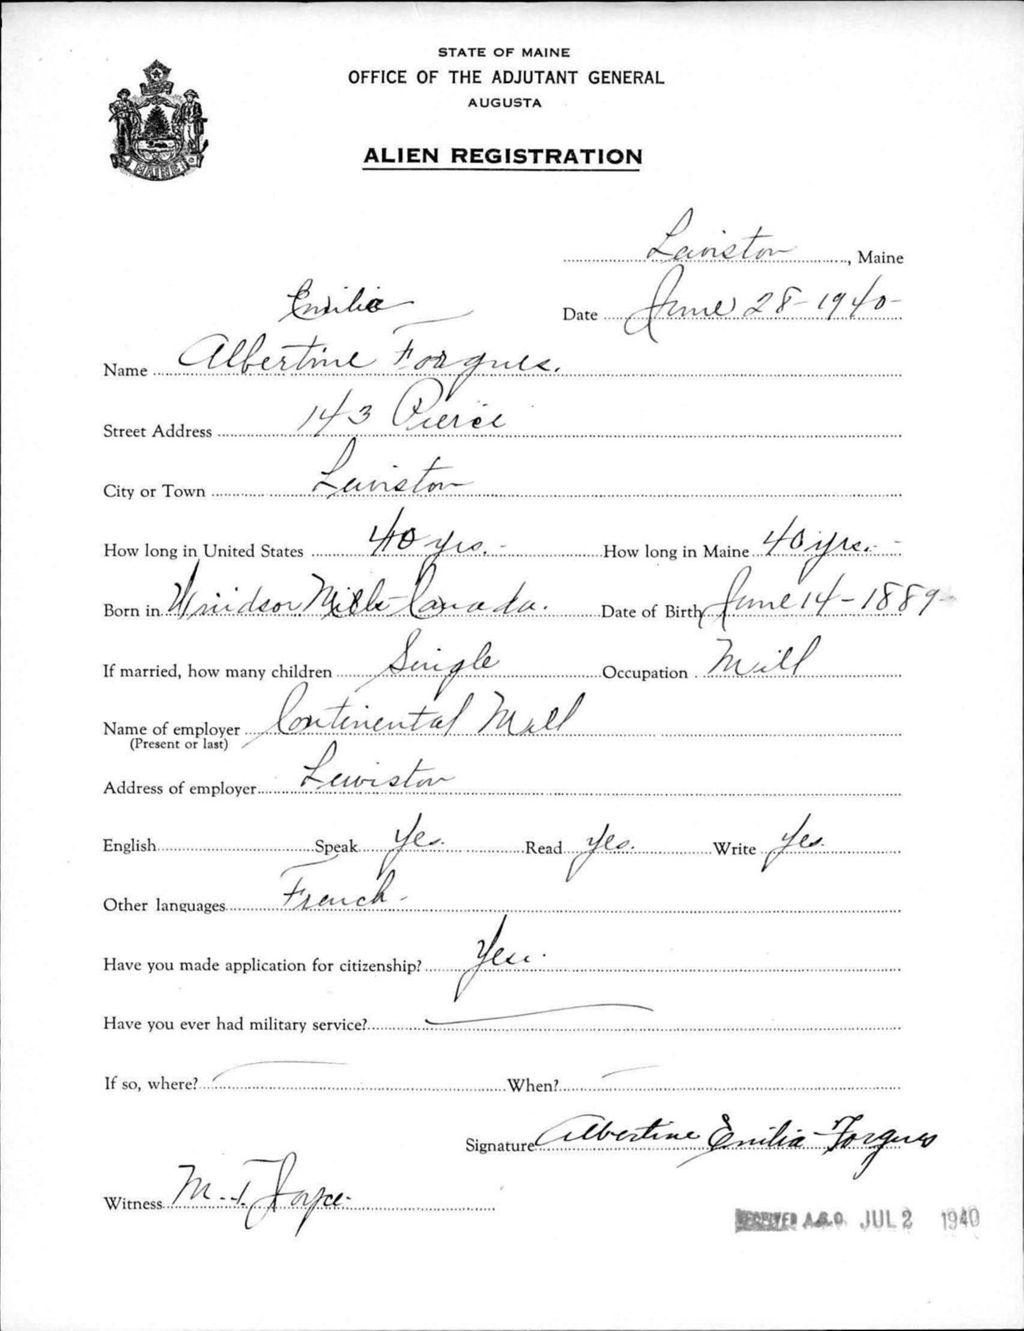 STATE OF MAINE
OFFICE OF THE ADJUTANT GENERAL
AUGUSTA
ALIEN REGISTRATION
MAINE
Lewiston, Maine
Date June 28-1940-
Emilia
Name Albertine Forgues.
Street Address 143 Pierce
City or Town Lewiston
How long in United States 40 yrs. - How long in Maine 40 yrs. -
Born in Windsor Mills-Canada. Date of Birth June 14-1889-
If married, how many children Single Occupation Mill
Name of employer Continental Mill
(Present or last)
Address of employer Lewiston
English Speak Yes. Read Yes. Write Yes.
Other languages French -
Have you made application for citizenship? Yes.
Have you ever had military service? —
If so, where? — When? —
Signature Albertine Emilia Forgues
Witness M. T. Joyce.
RECEIVED A.G.O. JUL 2 1940